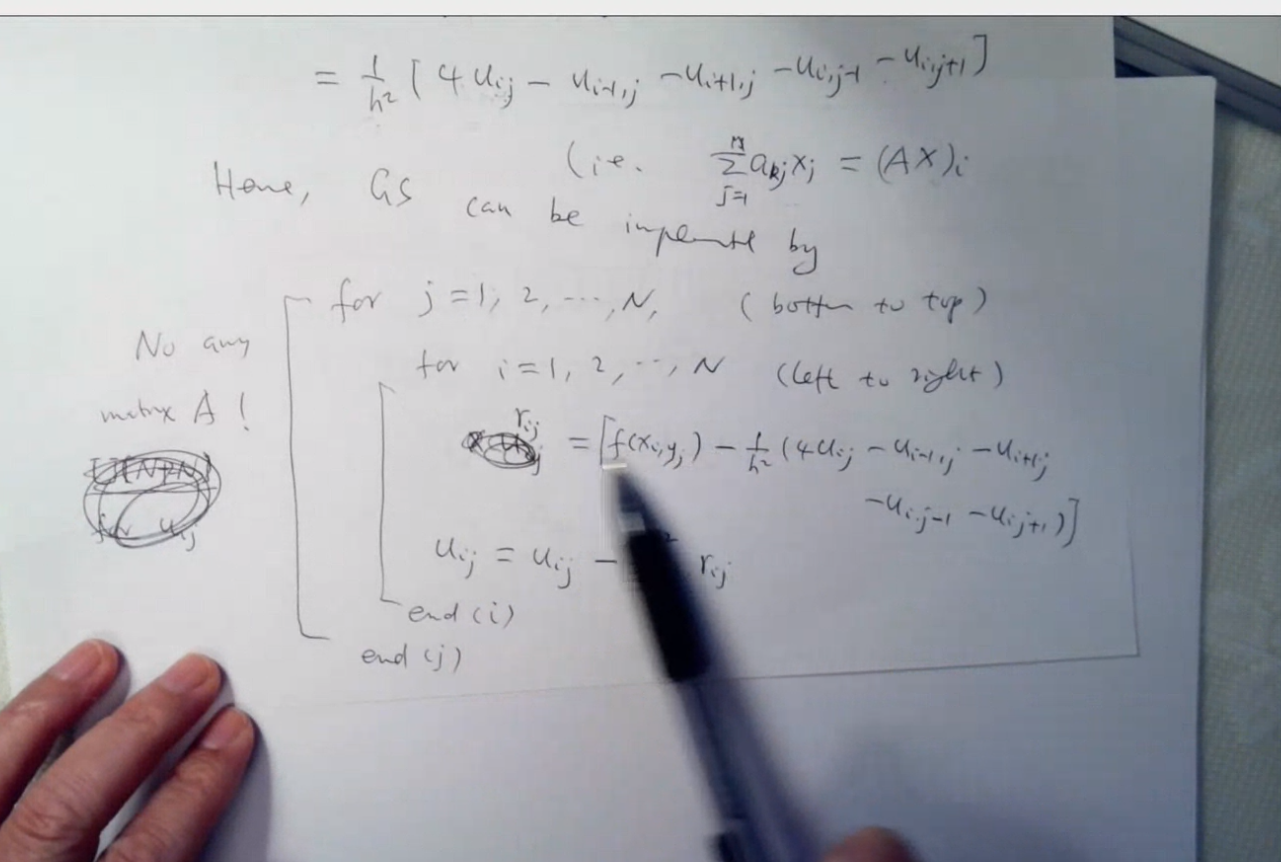 = 1/h² [ 4 u_{ij} − u_{i−1,j} − u_{i+1,j} − u_{i,j−1} − u_{i,j+1} ]
(i.e. Σ_{j=1}^{n} a_{kj} x_j = (AX)_i
Hence, GS can be implemented by
for j = 1, 2, ..., N, (bottom to top)
No any
for i = 1, 2, ..., N (left to right)
matrix A !
r_{ij} = [ f(x_i, y_j) − 1/h² (4 u_{ij} − u_{i−1,j} − u_{i+1,j}
− u_{i,j−1} − u_{i,j+1}) ]
u_{ij} = u_{ij} − ² r_{ij}
end (i)
end (j)